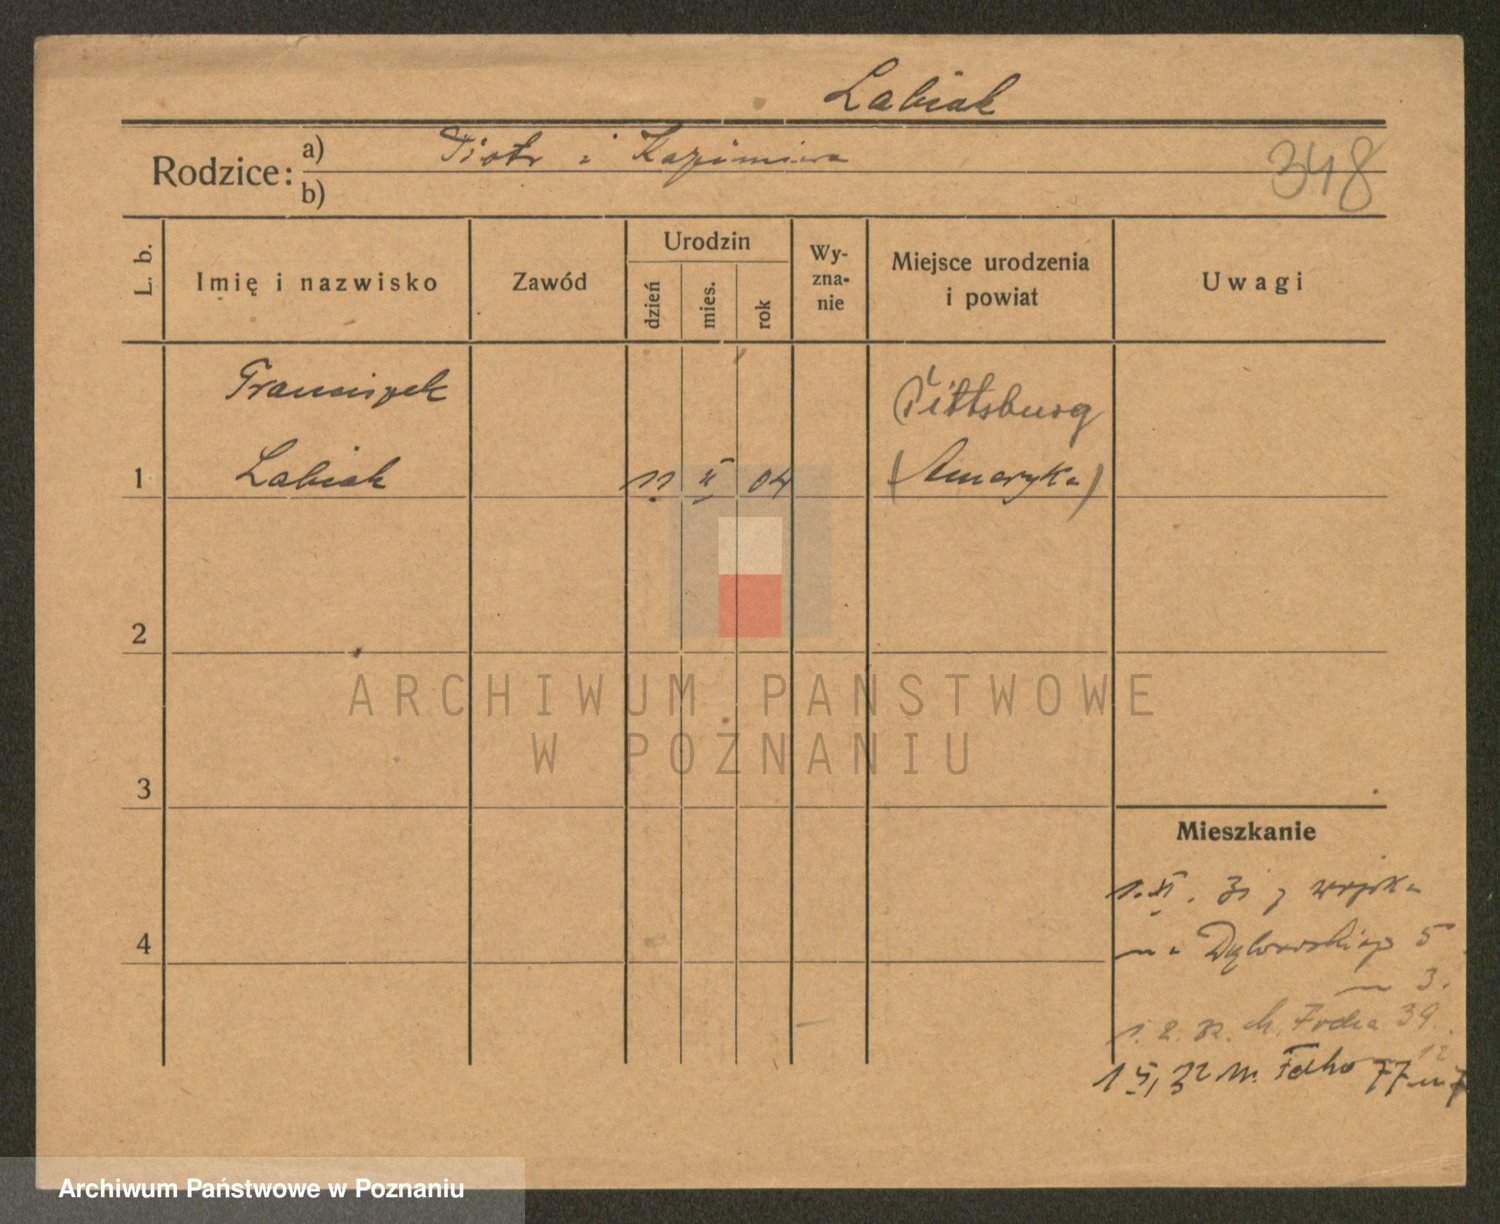 Labiak
Rodzice: a) Piotr i Kazimiera
b)
348
L. b.
Imię i nazwisko
Zawód
Urodzin
dzień
mies.
rok
Wy-
zna-
nie
Miejsce urodzenia
i powiat
Uwagi
Franciszek
Pittsburg
1 Labiak 11 II 04 (Ameryka)
2
ARCHIWUM PAŃSTWOWE
W POZNANIU
3
Mieszkanie
1. XI. 31 z wojska
na Dąbrowskiego 5
4
m 3.
1. 2. 32. M. Focha 39
12
1 5, 32 M. Focha 77 m 7
Archiwum Państwowe w Poznaniu